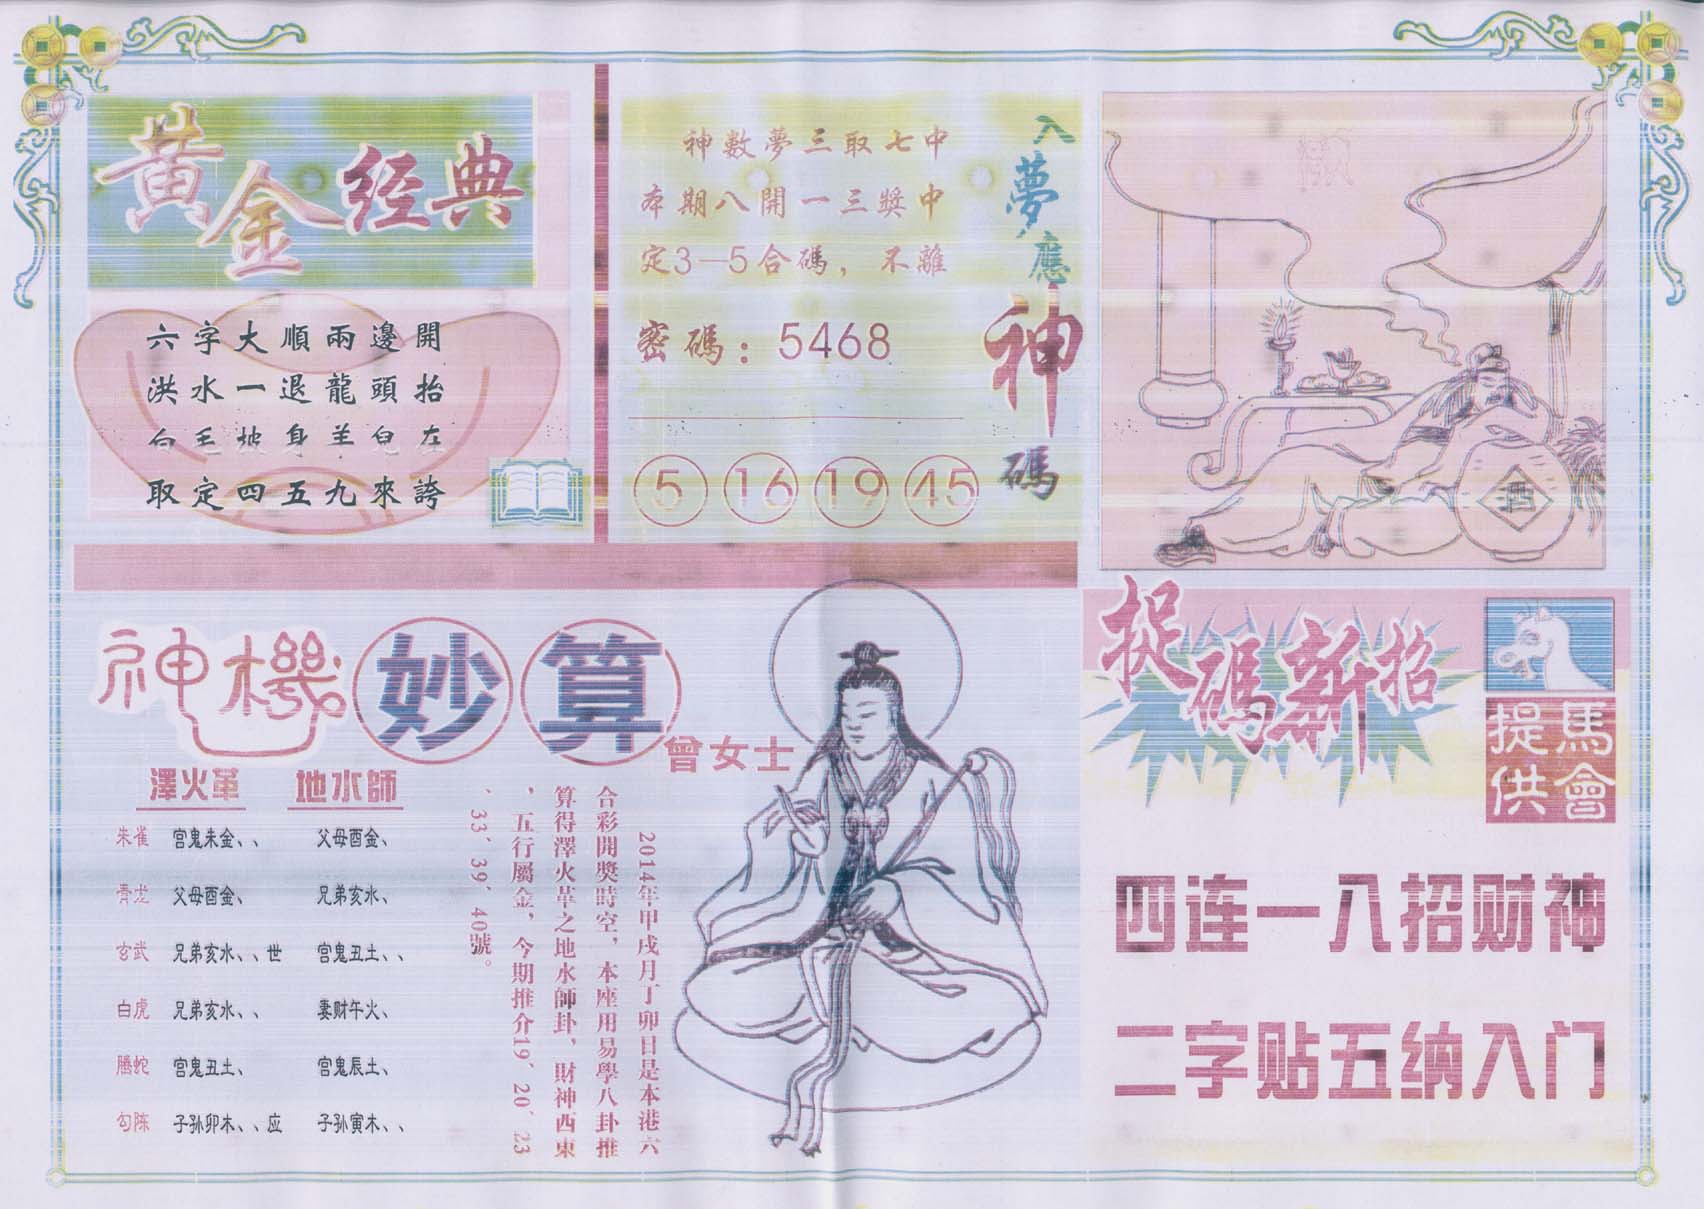 黄金经典
六字大順兩邊開
洪水一退龍頭抬
白毛披身羊兒在
取定四五九來誇
入夢應神碼
神數夢三取七中
本期八開一三獎中
定3—5合碼，不離
密碼：5468
5 16 19 45
酒
神機妙算
曾女士
澤火革 地水師
朱雀 宫鬼未金、、 父母酉金、
青龙 父母酉金、 兄弟亥水、
玄武 兄弟亥水、、世 宫鬼丑土、、
白虎 兄弟亥水、、 妻财午火、
腾蛇 宫鬼丑土、 宫鬼辰土、
勾陈 子孙卯木、、应 子孙寅木、、
2014年甲戌月丁卯日是本港六
合彩開獎時空，本座用易學八卦推
算得澤火革之地水師卦，財神西東
，五行屬金，今期推介19、20、23
、33、39、40號。
捉碼新招
馬會提供
四连一八招财神
二字贴五纳入门